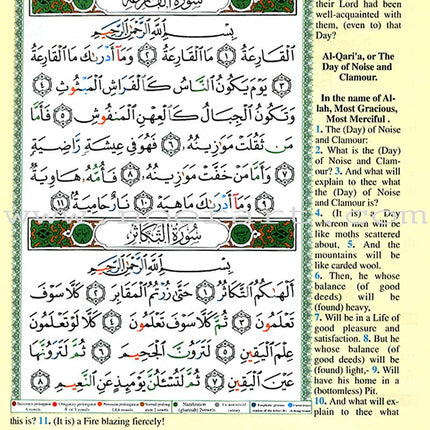 سُورَةُ القَارِعَةِ
بِسْمِ اللَّهِ الرَّحْمَٰنِ الرَّحِيمِ
الْقَارِعَةُ ١ مَا الْقَارِعَةُ ٢ وَمَا أَدْرَاكَ مَا الْقَارِعَةُ
٣ يَوْمَ يَكُونُ النَّاسُ كَالْفَرَاشِ الْمَبْثُوثِ ٤
وَتَكُونُ الْجِبَالُ كَالْعِهْنِ الْمَنفُوشِ ٥ فَأَمَّا
مَن ثَقُلَتْ مَوَازِينُهُ ٦ فَهُوَ فِي عِيشَةٍ رَّاضِيَةٍ
٧ وَأَمَّا مَنْ خَفَّتْ مَوَازِينُهُ ٨ فَأُمُّهُ هَاوِيَةٌ
٩ وَمَا أَدْرَاكَ مَا هِيَهْ ١٠ نَارٌ حَامِيَةٌ ١١
سُورَةُ التَّكَاثُرِ
بِسْمِ اللَّهِ الرَّحْمَٰنِ الرَّحِيمِ
أَلْهَاكُمُ التَّكَاثُرُ ١ حَتَّىٰ زُرْتُمُ الْمَقَابِرَ ٢ كَلَّا سَوْفَ
تَعْلَمُونَ ٣ ثُمَّ كَلَّا سَوْفَ تَعْلَمُونَ ٤ كَلَّا لَوْ تَعْلَمُونَ
عِلْمَ الْيَقِينِ ٥ لَتَرَوُنَّ الْجَحِيمَ ٦ ثُمَّ لَتَرَوُنَّهَا
عَيْنَ الْيَقِينِ ٧ ثُمَّ لَتُسْأَلُنَّ يَوْمَئِذٍ عَنِ النَّعِيمِ ٨
their Lord had been
well-acquainted with
them, (even to) that
Day?
Al-Qari'a, or The
Day of Noise and
Clamour.
In the name of Al-
lah, Most Gracious,
Most Merciful .
1. The (Day) of Noise
and Clamour:
2. What is the (Day)
of Noise and Clam-
our? 3. And what will
explain to thee what
the (Day) of Noise
and Clamour is?
4. (It is) a Day
whereon men will be
like moths scattered
about, 5. And the
mountains will be
like carded wool.
6. Then, he whose
balance (of good
deeds) will be
(found) heavy,
7. Will be in a Life of
good pleasure and
satisfaction. 8. But he
whose balance (of
good deeds) will be
(found) light,- 9. Will
have his home in a
(bottomless) Pit.
10. And what will ex-
plain to thee what
this is? 11. (It is) a Fire blazing fiercely!